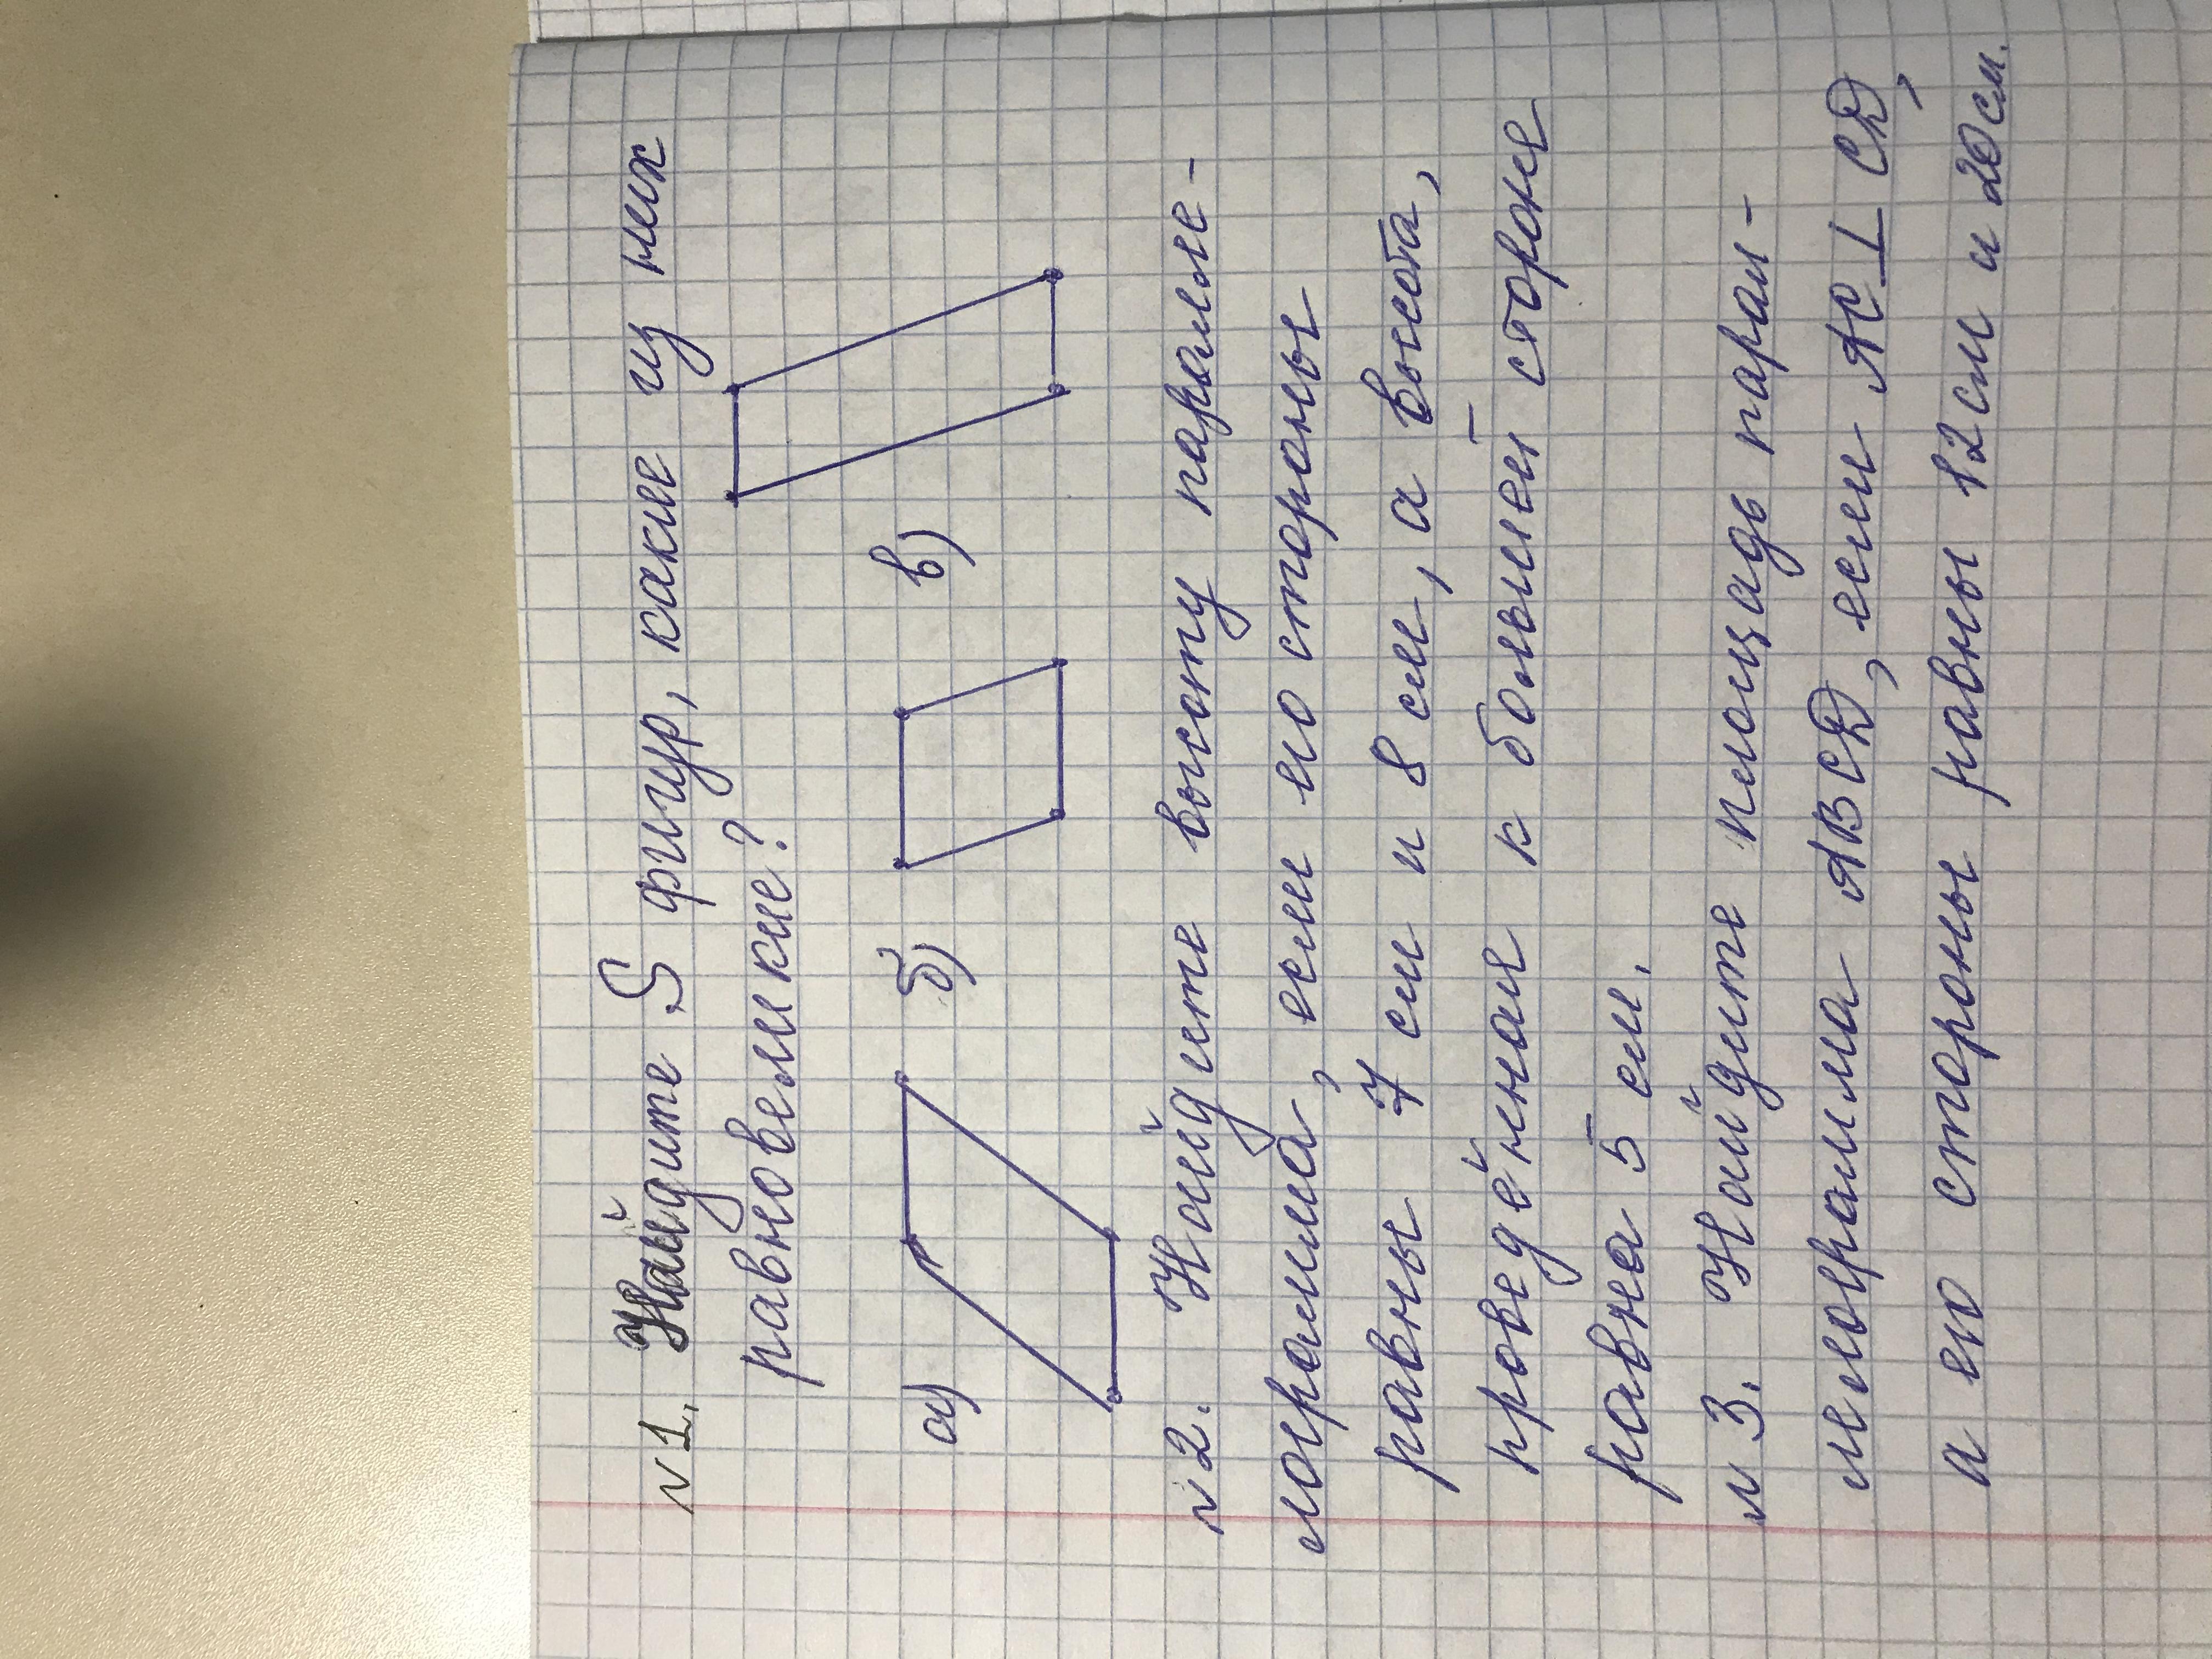 №1. Найдите S фигур, какие из них
равновеликие?
а) б) в)
№2. Найдите высоту паралле-
лограмма, если его стороны
равны 7 см и 8 см, а высота,
проведённая к большей стороне
равна 5 см.
№3. Найдите площадь парал-
лелограмма АВСД, если АС ⊥ СД,
а его стороны равны 12 см и 20 см.